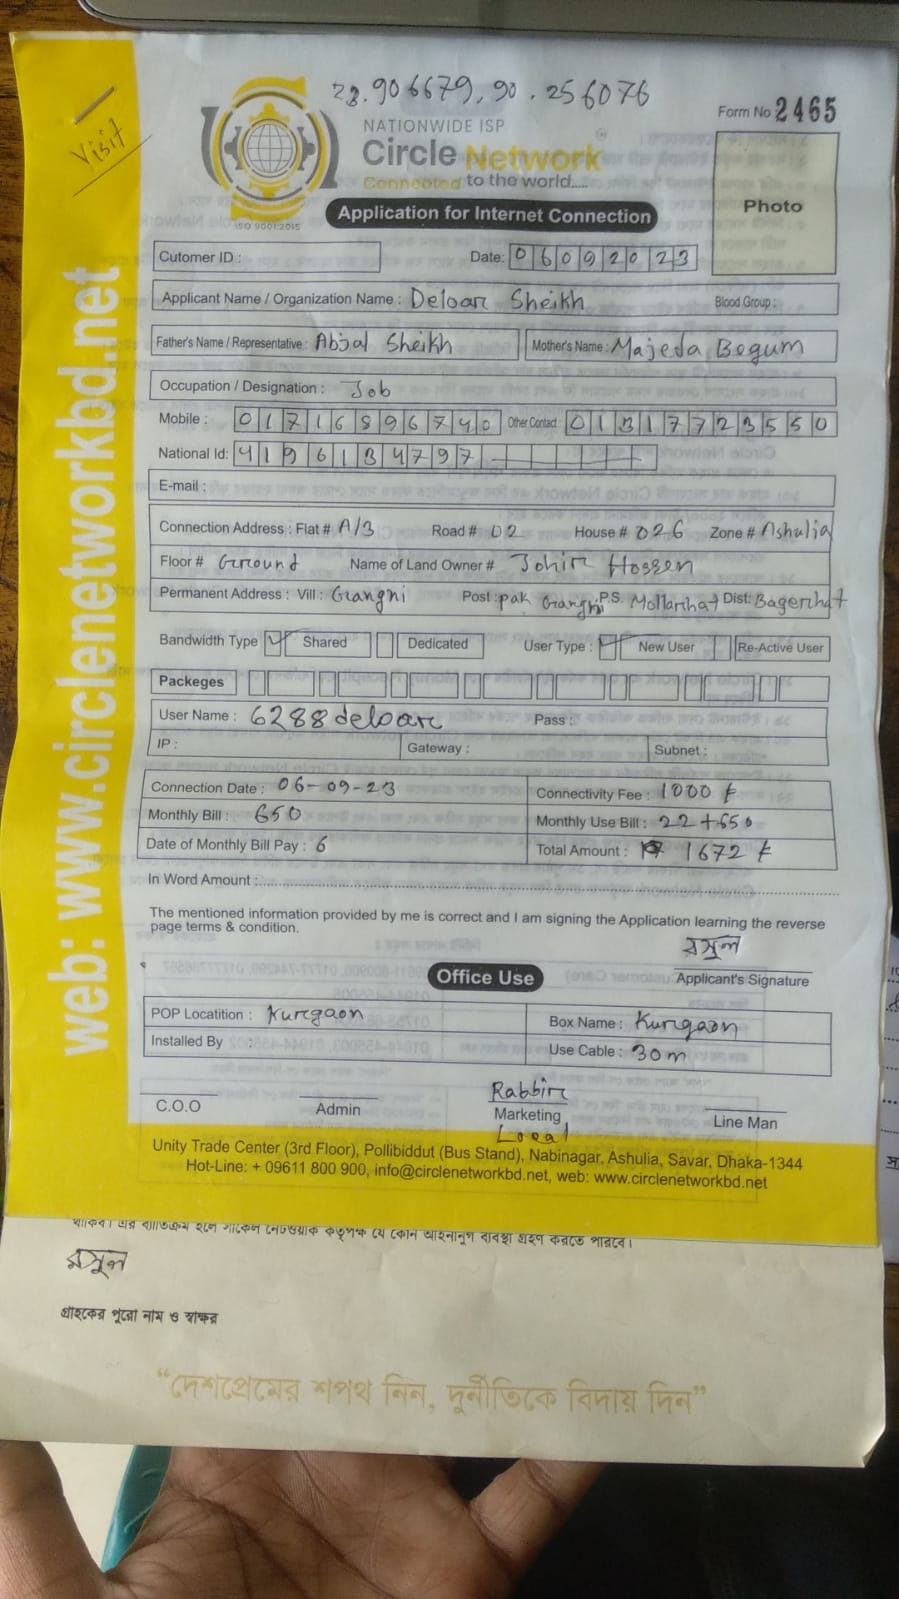 23.906679, 90.256076
Visit
Form No 2465
NATIONWIDE ISP
Circle Network
Connected to the world.....
ISO 9001:2015
Photo
Application for Internet Connection
Cutomer ID :
Date: 06092023
Applicant Name / Organization Name : Deloar Sheikh Blood Group :
Father's Name / Representative : Abjal Sheikh Mother's Name : Majeda Begum
Occupation / Designation : Job
Mobile : 01716896740 Other Contact : 01317723550
National Id: 4196134797
E-mail :
Connection Address : Flat # A/3 Road # 02 House # 026 Zone # Ashulia
Floor # Ground Name of Land Owner # Johir Hossen
Permanent Address : Vill : Gangni Post : pak Gangni P.S. Mollarhat Dist: Bagerhat
Bandwidth Type Shared Dedicated User Type : New User Re-Active User
Packeges
User Name : 6288deloar Pass :
IP : Gateway : Subnet :
Connection Date : 06-09-23 Connectivity Fee : 1000 ৳
Monthly Bill : 650 Monthly Use Bill : 22+650
Date of Monthly Bill Pay : 6 Total Amount : 1672 ৳
In Word Amount :
The mentioned information provided by me is correct and I am signing the Application learning the reverse
page terms & condition.
রসুল
Applicant's Signature
Office Use
POP Locatition : Kurgaon Box Name : Kurgaon
Installed By : Use Cable : 30m
Rabbir
C.O.O Admin Marketing Line Man
Local
Unity Trade Center (3rd Floor), Pollibiddut (Bus Stand), Nabinagar, Ashulia, Savar, Dhaka-1344
Hot-Line: + 09611 800 900, info@circlenetworkbd.net, web: www.circlenetworkbd.net
web: www.circlenetworkbd.net
থাকিব। এর ব্যতিক্রম হলে সার্কেল নেটওয়ার্ক কতৃপক্ষ যে কোন আইনানুগ ব্যবস্থা গ্রহণ করতে পারবে।
রসুল
গ্রাহকের পুরো নাম ও স্বাক্ষর
“দেশপ্রেমের শপথ নিন, দুর্নীতিকে বিদায় দিন”